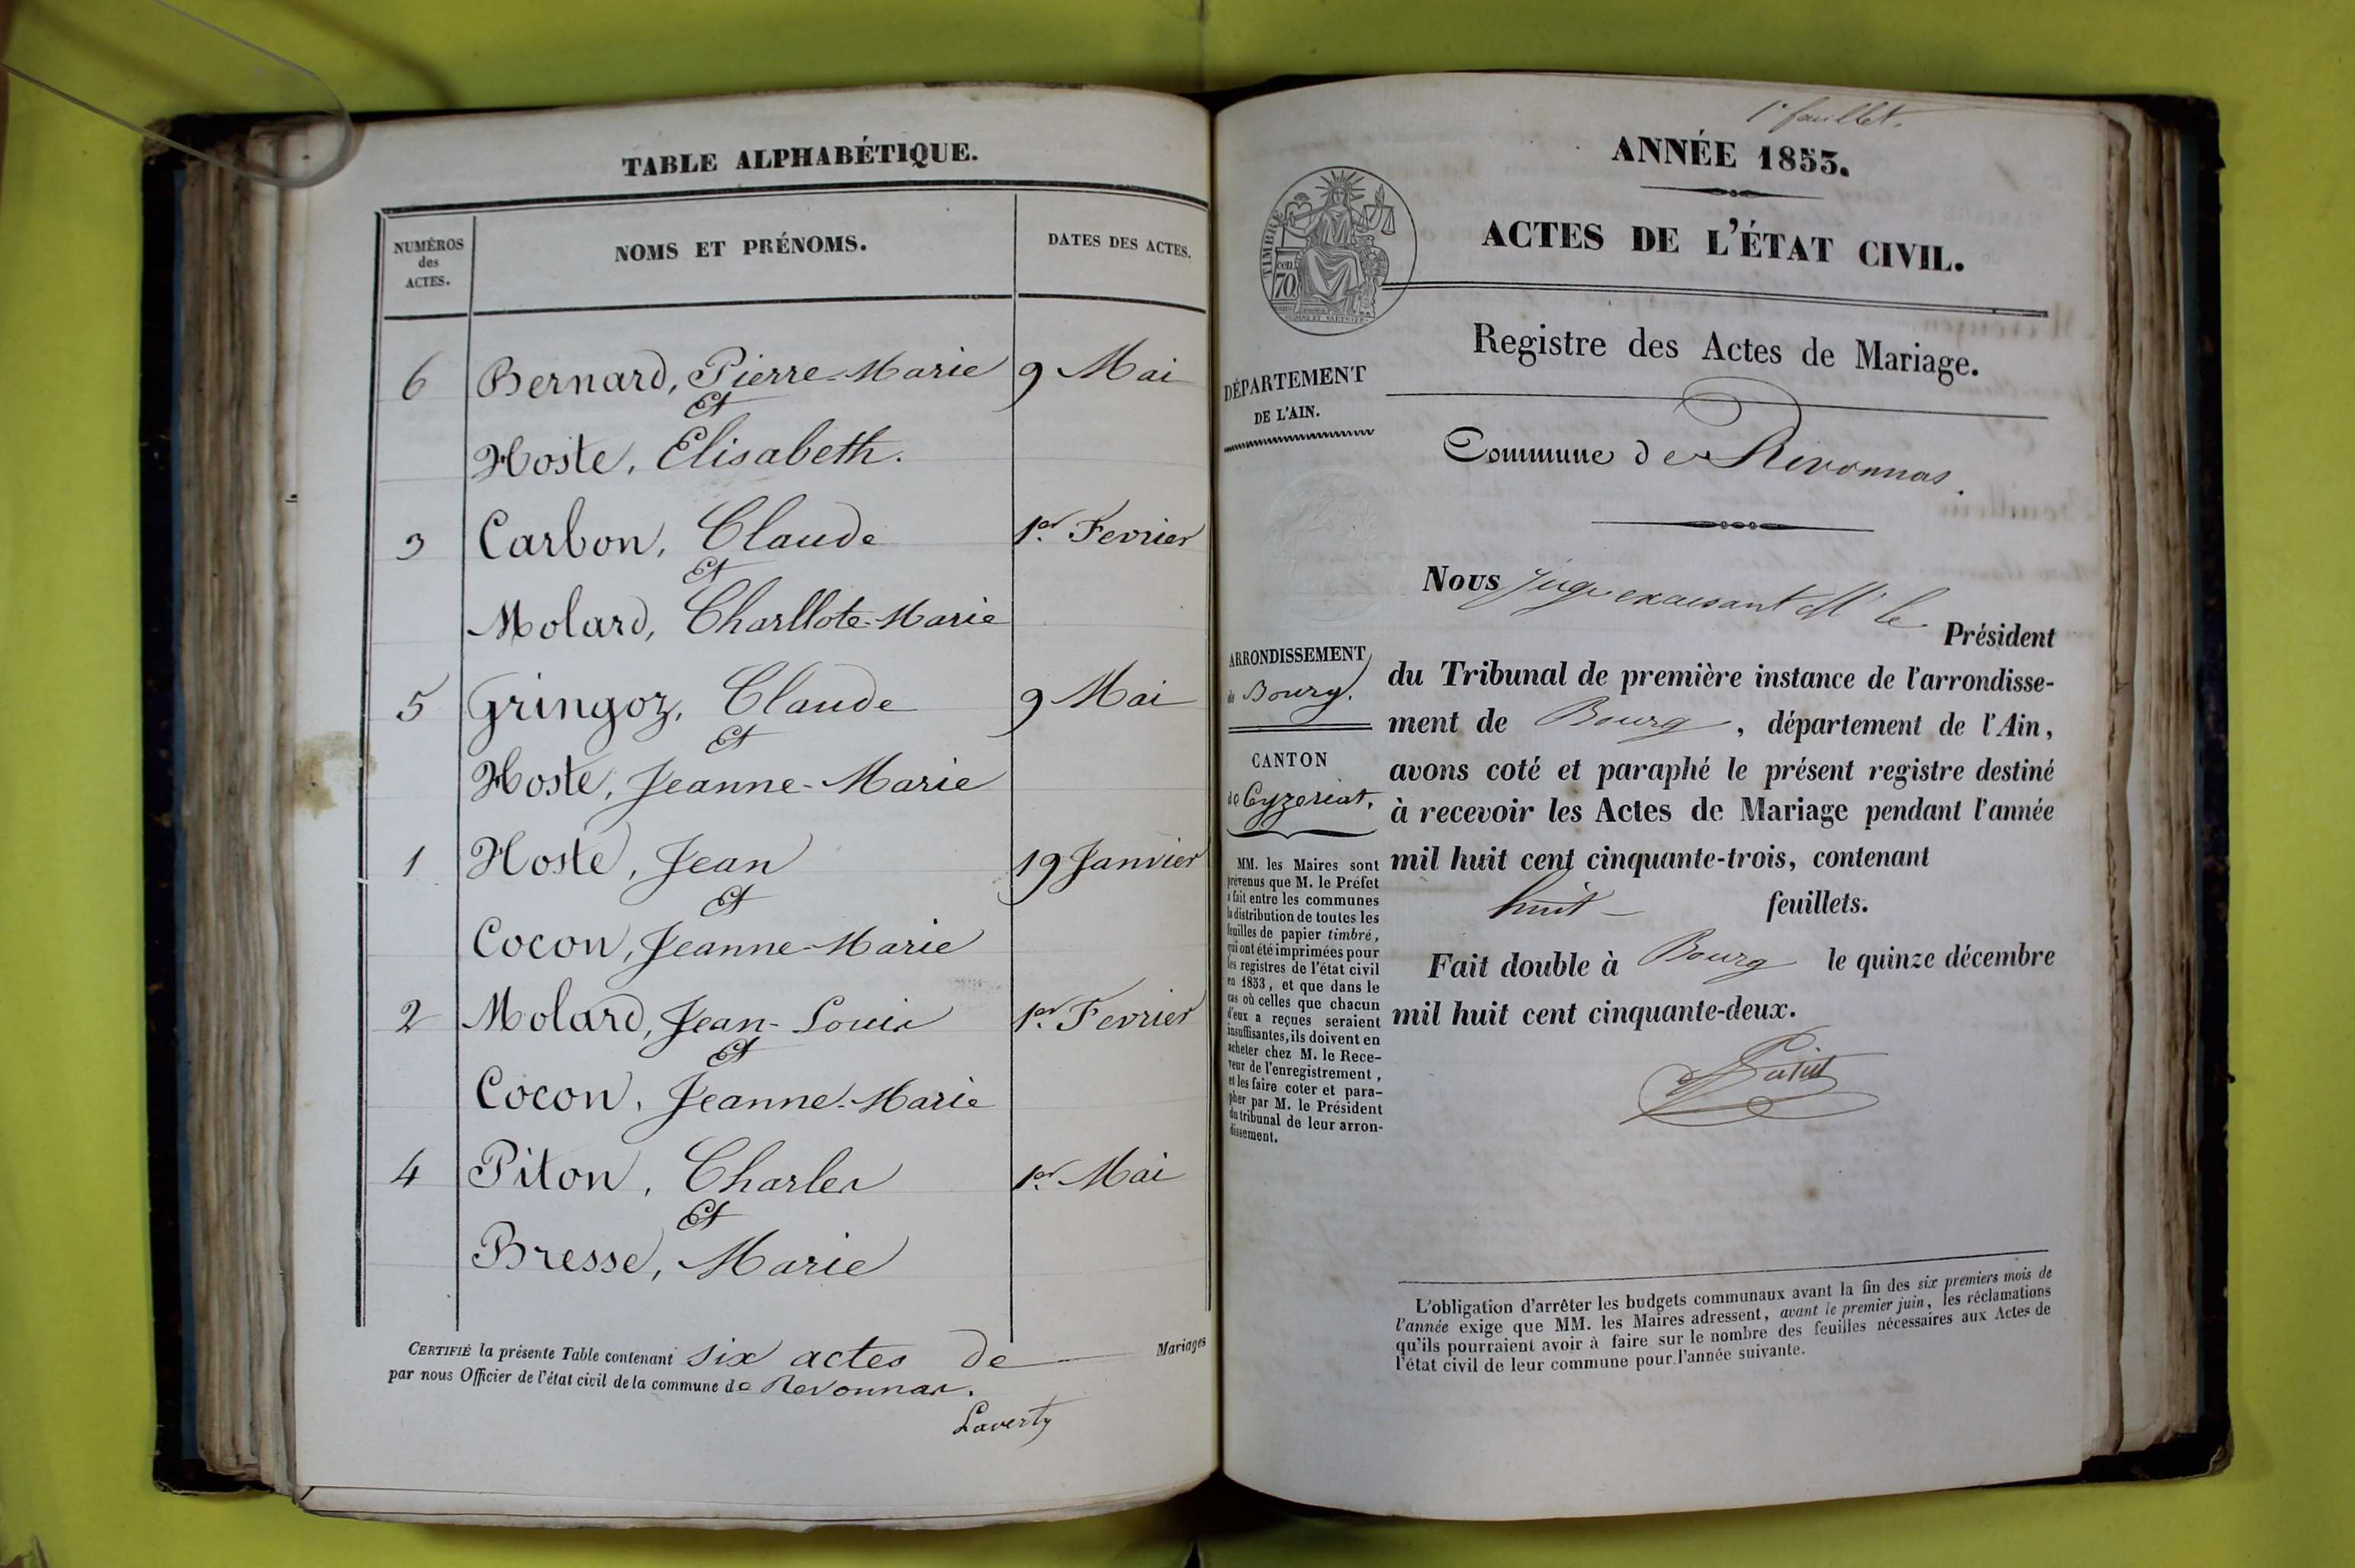 TABLE ALPHABÉTIQUE.
NUMÉROS
des
ACTES.
NOMS ET PRÉNOMS.
DATES DES ACTES.
6 Bernard, Pierre-Marie 9 Mai
Et
Hoste, Elisabeth.
3 Carbon, Claude 1er Fevrier
Et
Molard, Charllote-Marie
5 Gringoz, Claude 9 Mai
Et
Hoste, Jeanne-Marie
1 Hoste, Jean 19 Janvier
Et
Cocon, Jeanne-Marie
2 Molard, Jean-Louis 1er Fevrier
Et
Cocon, Jeanne-Marie
4 Piton, Charles 1er Mai
Et
Bresse, Marie
CERTIFIÉ la présente Table contenant six actes de Mariages
par nous Officier de l'état civil de la commune de Revonnas.
Laverty
1er feuillet.
ANNÉE 1853.
ACTES DE L'ÉTAT CIVIL.
TIMBRE
cen.
70
Registre des Actes de Mariage.
DÉPARTEMENT
DE L'AIN.
Commune de Revonnas.
ARRONDISSEMENT
de Bourg.
CANTON
de Ceyzeriat.
MM. les Maires sont
prévenus que M. le Préfet
a fait entre les communes
la distribution de toutes les
feuilles de papier timbré,
qui ont été imprimées pour
les registres de l'état civil
en 1853, et que dans le
cas où celles que chacun
d'eux a reçues seraient
insuffisantes, ils doivent en
acheter chez M. le Rece-
veur de l'enregistrement,
et les faire coter et para-
pher par M. le Président
du tribunal de leur arron-
dissement.
Nous Juge M. le Président
du Tribunal de première instance de l'arrondisse-
ment de Bourg, département de l'Ain,
avons coté et paraphé le présent registre destiné
à recevoir les Actes de Mariage pendant l'année
mil huit cent cinquante-trois, contenant
huit feuillets.
Fait double à Bourg le quinze décembre
mil huit cent cinquante-deux.
L'obligation d'arrêter les budgets communaux avant la fin des six premiers mois de
l'année exige que MM. les Maires adressent, avant le premier juin, les réclamations
qu'ils pourraient avoir à faire sur le nombre des feuilles nécessaires aux Actes de
l'état civil de leur commune pour l'année suivante.